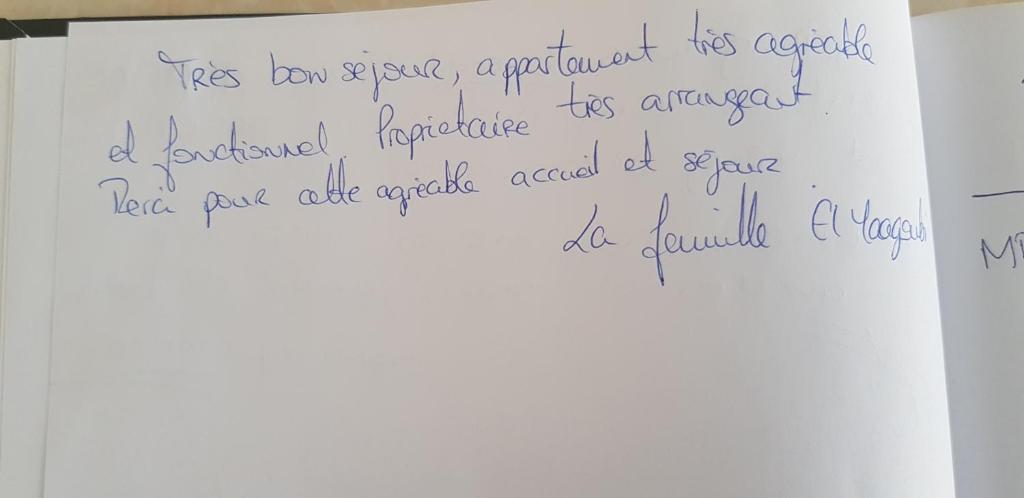 Très bon séjour, appartement très agréable
et fonctionnel. Propriétaire très arrangeant.
Merci pour cette agréable accueil et séjour
La famille El